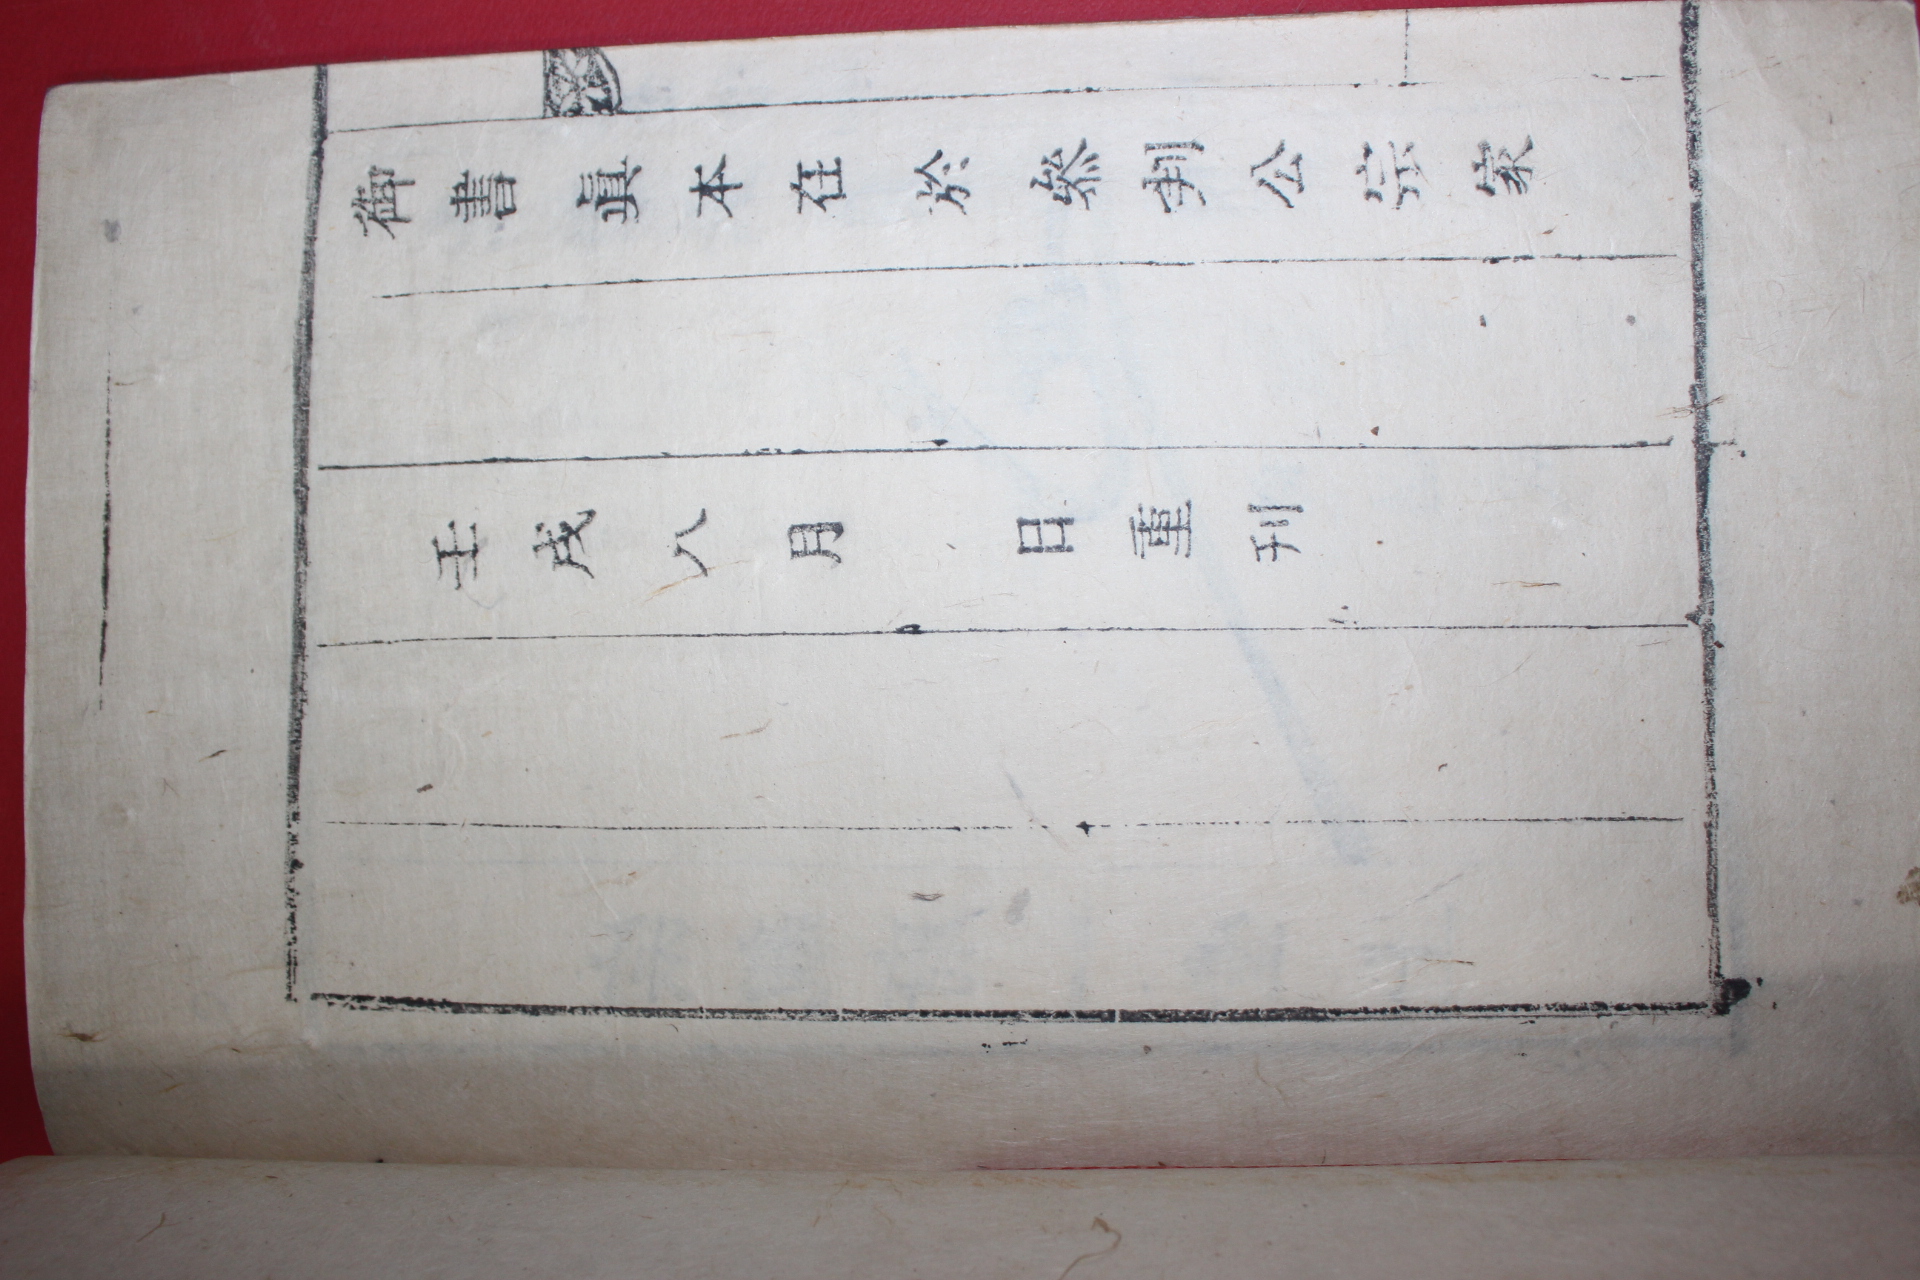 御書眞本在於叅判公宗家
壬戌八月 日重刊